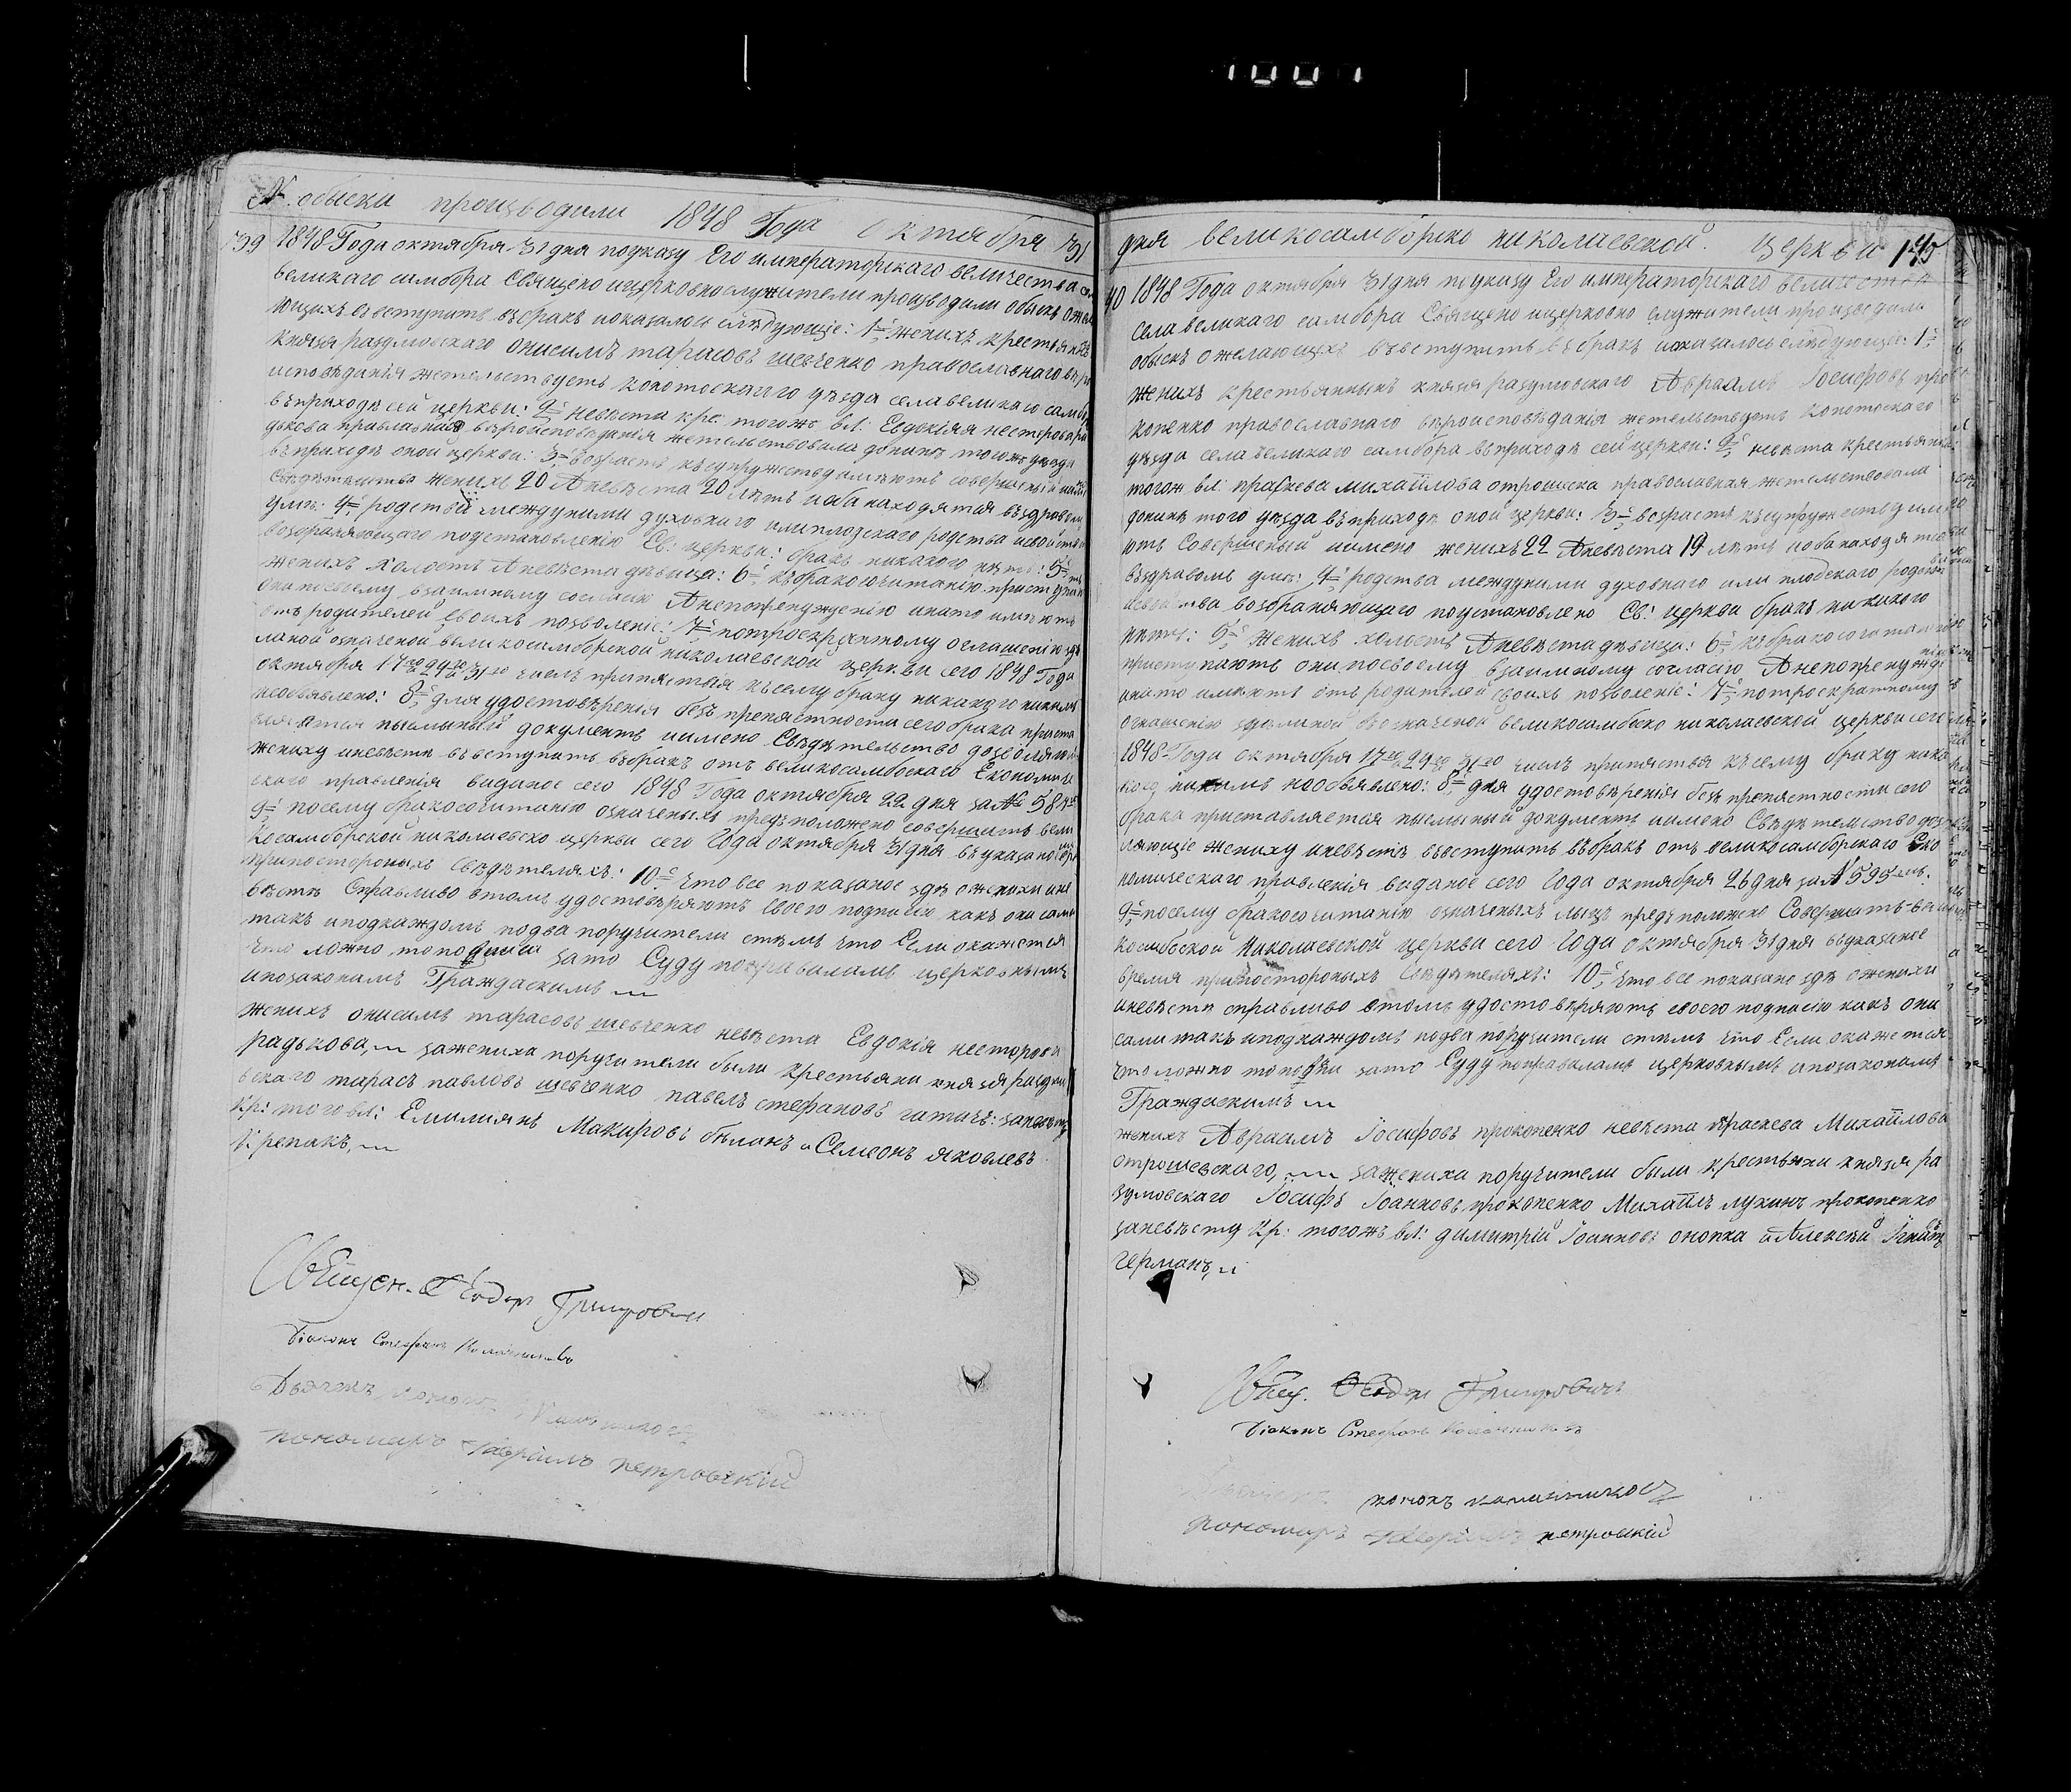 № обыски производили 1848 Года октября 31
39 1848 Года октября 31 дня поуказу Его императорскаго величества
великаго самбора Священо ицерковнослужители производили обыскъ
ющихъ въвступить въбракъ ипоказалось слѣдующіе: 1е женихъ крестьянинъ
князя разумовскаго онисимъ тарасовъ шевченко православнаго
исповѣданія жетельствуетъ конотоскаго уѣзда села великаго
въприходѣ сей церкви: 2е невѣста кре: тогожъ вл: Евдокія несторова
дькова православная вѣроисповѣданія жетельствовала донинѣ тогожъ уѣзда
въприходѣ оной церкви: 3е возрастъ ксупружествѹ имѣютъ совершеный
женихъ 20 Аневѣста 20 лѣтъ иоба находятся въздравомъ
умѣ: 4е родства междуними духовнаго или плотскаго родства исвойства
возбраняющаго поустановленію Св: церкви: бракъ никакого нѣтъ: 5е
женихъ холостъ Аневѣста дѣвица: 6е къбракосочитанію приступаютъ
они посвоему взаимному согласію Анепопренужденію инато имѣютъ
отъ родителей своихъ позволеніе: 7е потроекратному оглашенію
ланой означеной великосамборской николаевской церкви сего 1848 Года
октября 17го 24го 31го числъ припятствія ксему браку никакого никимъ
необявлено: 8е для удостовѣренія безъ препятствености сего брака
письменый документъ имено Свѣдѣтельство
жениху иневѣсти въвступить въбракъ отъ великосамбоскаго Економиче
скаго правленія виданое сего 1848 Года октября 22 дня за №
9е посему бракосочитанію означеныхъ предположено совершить вели
косамборской николаевско церкви сего Года октября 31 дня въуказаное
припостороныхъ Свѣдѣтеляхъ: 10е что все показаное здѣ оженихи ине
вѣсти Справливо втомъ удостовѣряютъ своею подписію какъ они сами
такъ иподкаждомъ подва поручители стѣмъ что Если окажется
что ложно, то зато Суду поправиламъ церковнымъ
изаконамъ Граждаскимъ
женихъ онисимъ тарасовъ шевченко невѣста Евдокія несторова
радькова, зажениха поручители были крестьяни князя
вскаго тарасъ павловъ шевченко павелъ стефановъ
Кр: того вл: Емилиянъ Макировъ и Семеонъ яковлевъ
Крепакъ,
Священ. Ѳеодоръ Григоровичъ
Діаконъ Стефанъ
Дьячекъ
пономаръ Гавріилъ петровскій
дня великосамборско николаевской церкви 145
40 1848 Года октября 31 дня поуказу Его императорскаго величества
села великаго самбора Священо ицерковно служители производили
обыскъ ожелающихъ въвступить въбракъ ипоказалось слѣдующіе: 1е
женихъ крестьянинъ князя разумовскаго Авраамъ Іосифовъ про
копенко православнаго вѣроисповѣданія жетельствуетъ конотоскаго
уѣзда села великаго самбора въприходѣ сей церкви: 2е невѣста крестьянка
тогож вл: праскева михаилова отрошеска православная жетельствовала
донинѣ того уѣзда въприходѣ оной церкви: 3е возрастъ ксупружествѹ имѣ
ютъ Совершеный имено женихъ 22 Аневѣста 19 лѣтъ иоба находятся
въздравомъ умѣ: 4е родства междуними духовнаго или плодскаго родства
исвойства возбраняющаго поустановлено Св: церкви бракъ никакого
нѣтъ: 5е женихъ холостъ Аневѣста дѣвица: 6е къбракосочитанію
приступаютъ они посвоему взаимному согласію Анепопренужде
инато имѣютъ отъ родителей своихъ позволеніе: 7е потроекратному
оглашенію здѣланой въозначеной великосамбоско николаевской церкви сего
1848 Года октября 17го 24го 31го числъ припятствія ксему браку ника
кого никимъ необъявлено: 8е для удостовѣренія безъ препятствености сего
брака приставляется письменый документъ имено Свѣдѣтельство дозво
ляющіе жениху иневѣстѣ въвступить въбракъ отъ великосамборскаго Еко
номическаго правленія виданое сего Года октября 26 дня за № 595
9е посему бракосочитанію означеныхъ лицъ предположено Совершить вели
косамбоской Николаевской церкви сего Года октября 31 дня въуказаное
время припостороныхъ Свѣдѣтеляхъ: 10е что все показано здѣ оженихи
иневѣсти справливо втомъ удостовѣряютъ своею подписію какъ они
сами такъ иподкаждомъ подва поручители стѣмъ что Если окажется
что ложно то зато Суду поправиламъ церковнымъ ипозаконамъ
Граждаскимъ
женихъ Авраамъ Іосифовъ прокопенко невѣста праскева Михаилова
отрошевскаго, зажениха поручители были крестьяни князя ра
зумовскаго Іосифъ Іоанновъ прокопенко Михаилъ лукинъ прокопенко
заневѣсту Кр: тогожъ вл: димитрій Іоанновъ онопка и Алексѣй
германъ,
Свящ. Ѳеодоръ Григоровичъ
Діаконъ Стефанъ
пономаръ Гавріилъ петровскій